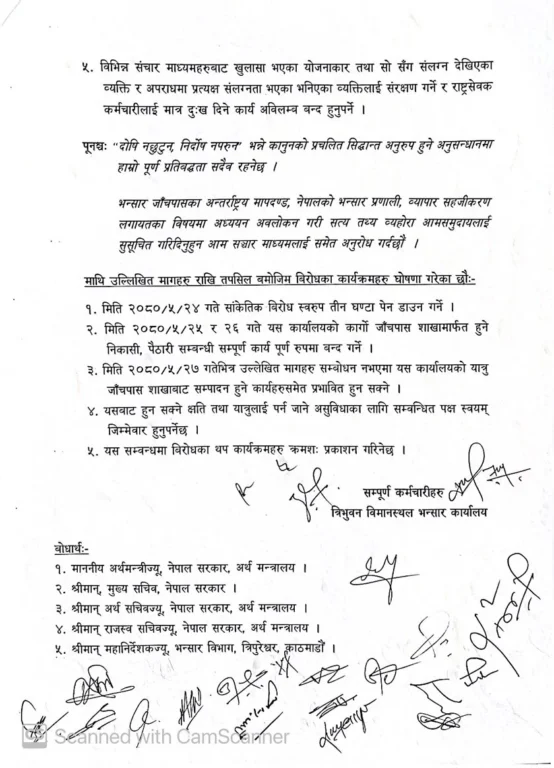 ५. विभिन्न संचार माध्यमहरुबाट खुलासा भएका योजनाकार तथा सो सँग संलग्न देखिएका
व्यक्ति र अपराधमा प्रत्यक्ष संलग्नता भएका भनिएका व्यक्तिलाई संरक्षण गर्ने र राष्ट्रसेवक
कर्मचारीलाई मात्र दुःख दिने कार्य अविलम्ब बन्द हुनुपर्ने ।
पूनश्चः "दोषि नछुटुन्, निर्दोष नपरुन" भन्ने कानुनको प्रचलित सिद्धान्त अनुरुप हुने अनुसन्धानमा
हाम्रो पूर्ण प्रतिबद्धता सदैव रहनेछ ।
भन्सार जाँचपासका अन्तर्राष्ट्रिय मापदण्ड, नेपालको भन्सार प्रणाली, व्यापार सहजीकरण
लगायतका विषयमा अध्ययन अवलोकन गरी सत्य तथ्य व्यहोरा आमसमुदायलाई
सुसूचित गरिदिनुहुन आम सञ्चार माध्यमलाई समेत अनुरोध गर्दछौं ।
माथि उल्लिखित मागहरु राखि तपसिल बमोजिम विरोधका कार्यक्रमहरु घोषणा गरेका छौः-
१. मिति २०८०/५/२४ गते सांकेतिक विरोध स्वरुप तीन घण्टा पेन डाउन गर्ने ।
२. मिति २०८०/५/२५ र २६ गते यस कार्यालयको कार्गो जाँचपास शाखामार्फत हुने
निकासी, पैठारी सम्बन्धी सम्पूर्ण कार्य पूर्ण रुपमा बन्द गर्ने ।
३. मिति २०८०/५/२७ गतेभित्र उल्लेखित मागहरु सम्बोधन नभएमा यस कार्यालयको यात्रु
जाँचपास शाखाबाट सम्पादन हुने कार्यहरुसमेत प्रभावित हुन सक्ने ।
४. यसबाट हुन सक्ने क्षति तथा यात्रुलाई पर्न जाने असुविधाका लागि सम्बन्धित पक्ष स्वयम्
जिम्मेवार हुनुपर्नेछ ।
५. यस सम्बन्धमा विरोधका थप कार्यक्रमहरु क्रमशः प्रकाशन गरिनेछ ।
सम्पूर्ण कर्मचारीहरु
त्रिभुवन विमानस्थल भन्सार कार्यालय
बोधार्थः-
१. माननीय अर्थमन्त्रीज्यू, नेपाल सरकार, अर्थ मन्त्रालय ।
२. श्रीमान्, मुख्य सचिव, नेपाल सरकार ।
३. श्रीमान् अर्थ सचिवज्यू, नेपाल सरकार, अर्थ मन्त्रालय ।
४. श्रीमान् राजस्व सचिवज्यू, नेपाल सरकार, अर्थ मन्त्रालय ।
५. श्रीमान् महानिर्देशकज्यू, भन्सार विभाग, त्रिपुरेश्वर, काठमाडौं ।
Scanned with CamScanner